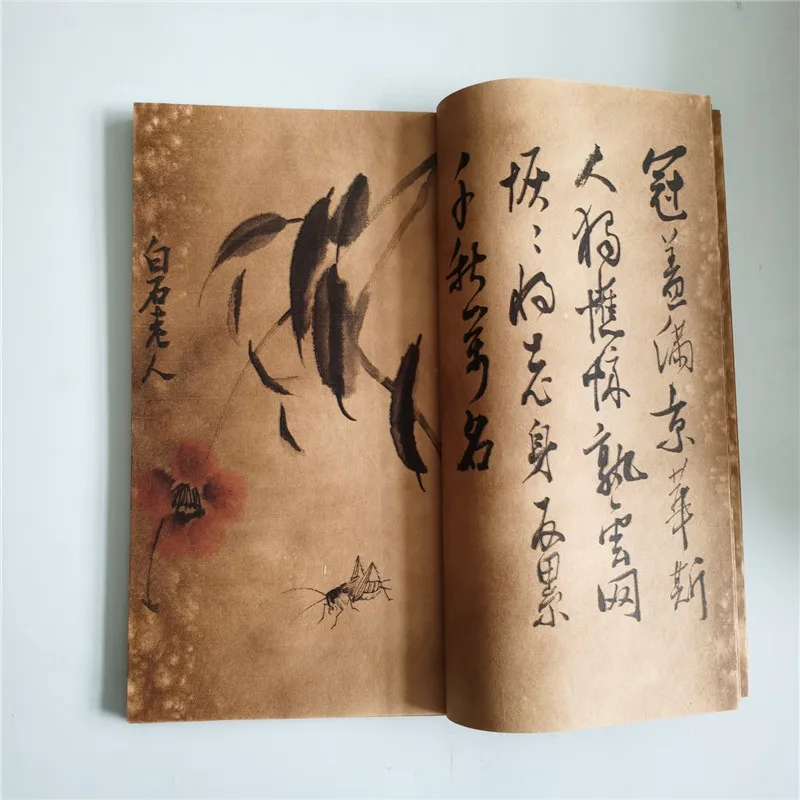 冠蓋滿京華斯
人獨憔悴孰雲网
恢〻将老身反累
千秋萬名
白石老人